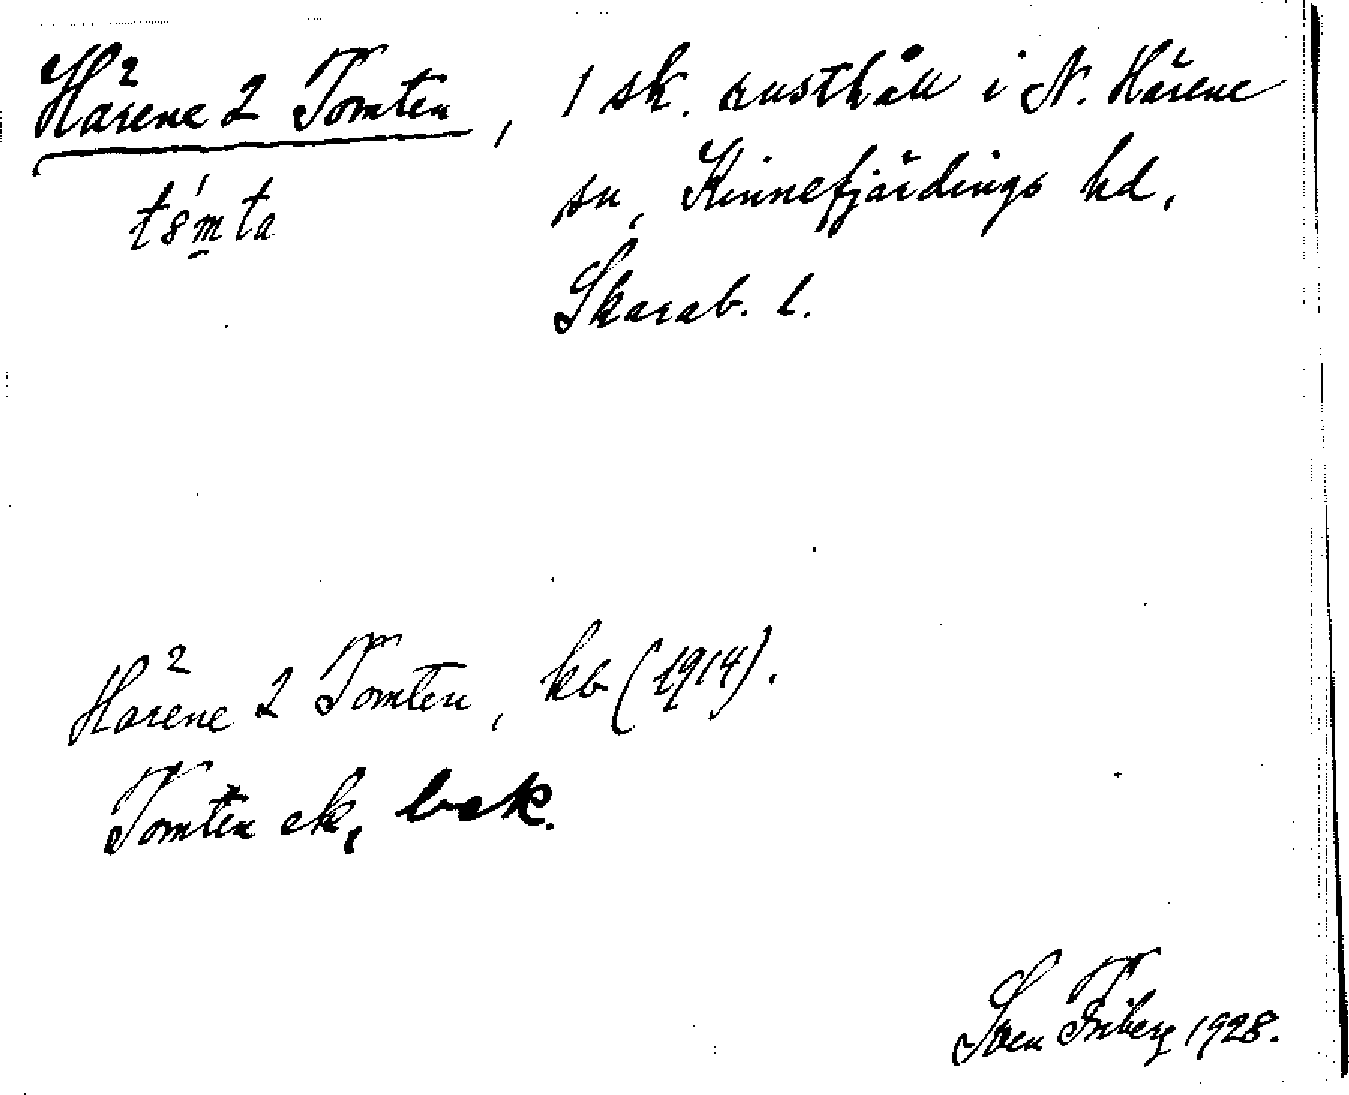 Härene 2 Tomten, 1 sk. rusthåll i N. Härene
t8́mta sn, Kinnefjärdings hd,
Skarab. l.
Härene 2 Tomten, kb (1914).
Tomten ek, bsk.
Sven Friberg 1928.